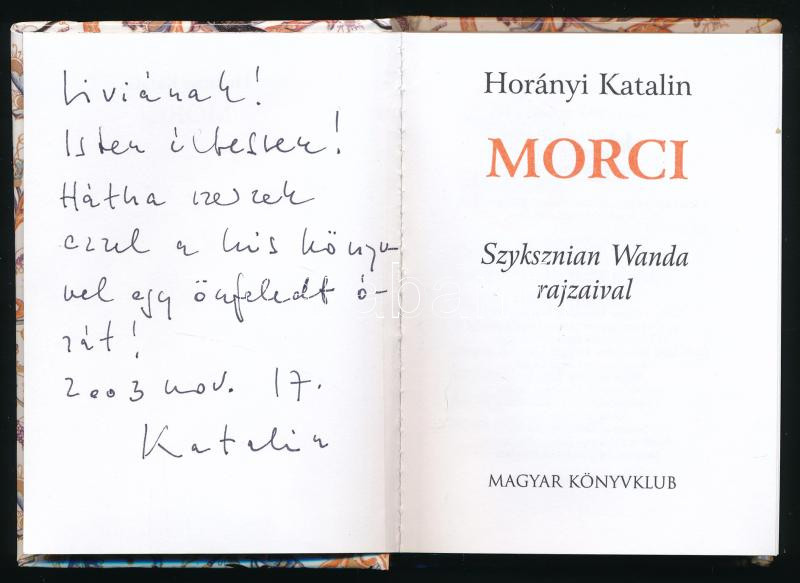 Liviának!
Isten éltessen!
Hátha szerzek
ezzel a kis könyv-
vel egy önfeledt ó-
rát!
2003 nov. 17.
Katalin
Horányi Katalin
MORCI
Szyksznian Wanda
rajzaival
MAGYAR KÖNYVKLUB